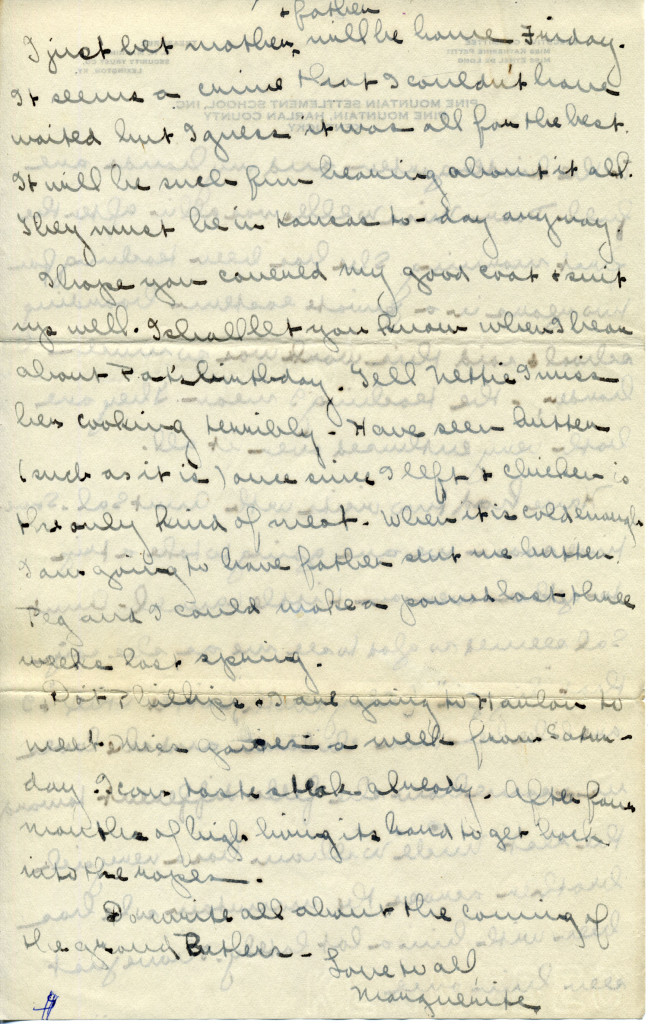 + father
I just bet mother, will be home Friday.
It seems a crime that I couldn't have
waited but I guess it was all for the best.
It will be such fun hearing about it all.
They must be in Kansas to-day anyway.
I hope you covered my good coat + suit
up well. I shall let you know when I hear
about Pat's birthday. Tell Nettie I miss
her cooking terribly. Have seen butter
(such as it is) once since I left + chicken is
the only kind of meat. When it is cold enough
I am going to have father sent me butter.
Peg and I could make a pound last three
weeks last spring.
Dot Phillips + I are going to Harlan to
meet Miss Gaines a week from Satur-
day. I can taste steak already. After four
months of high living its hard to get back
into the ropes.
Do write all about the coming of
the grand Butlers -
Love to all,
Marguerite.
PINE MOUNTAIN SETTLEMENT SCHOOL, INC.
PINE MOUNTAIN, HARLAN COUNTY